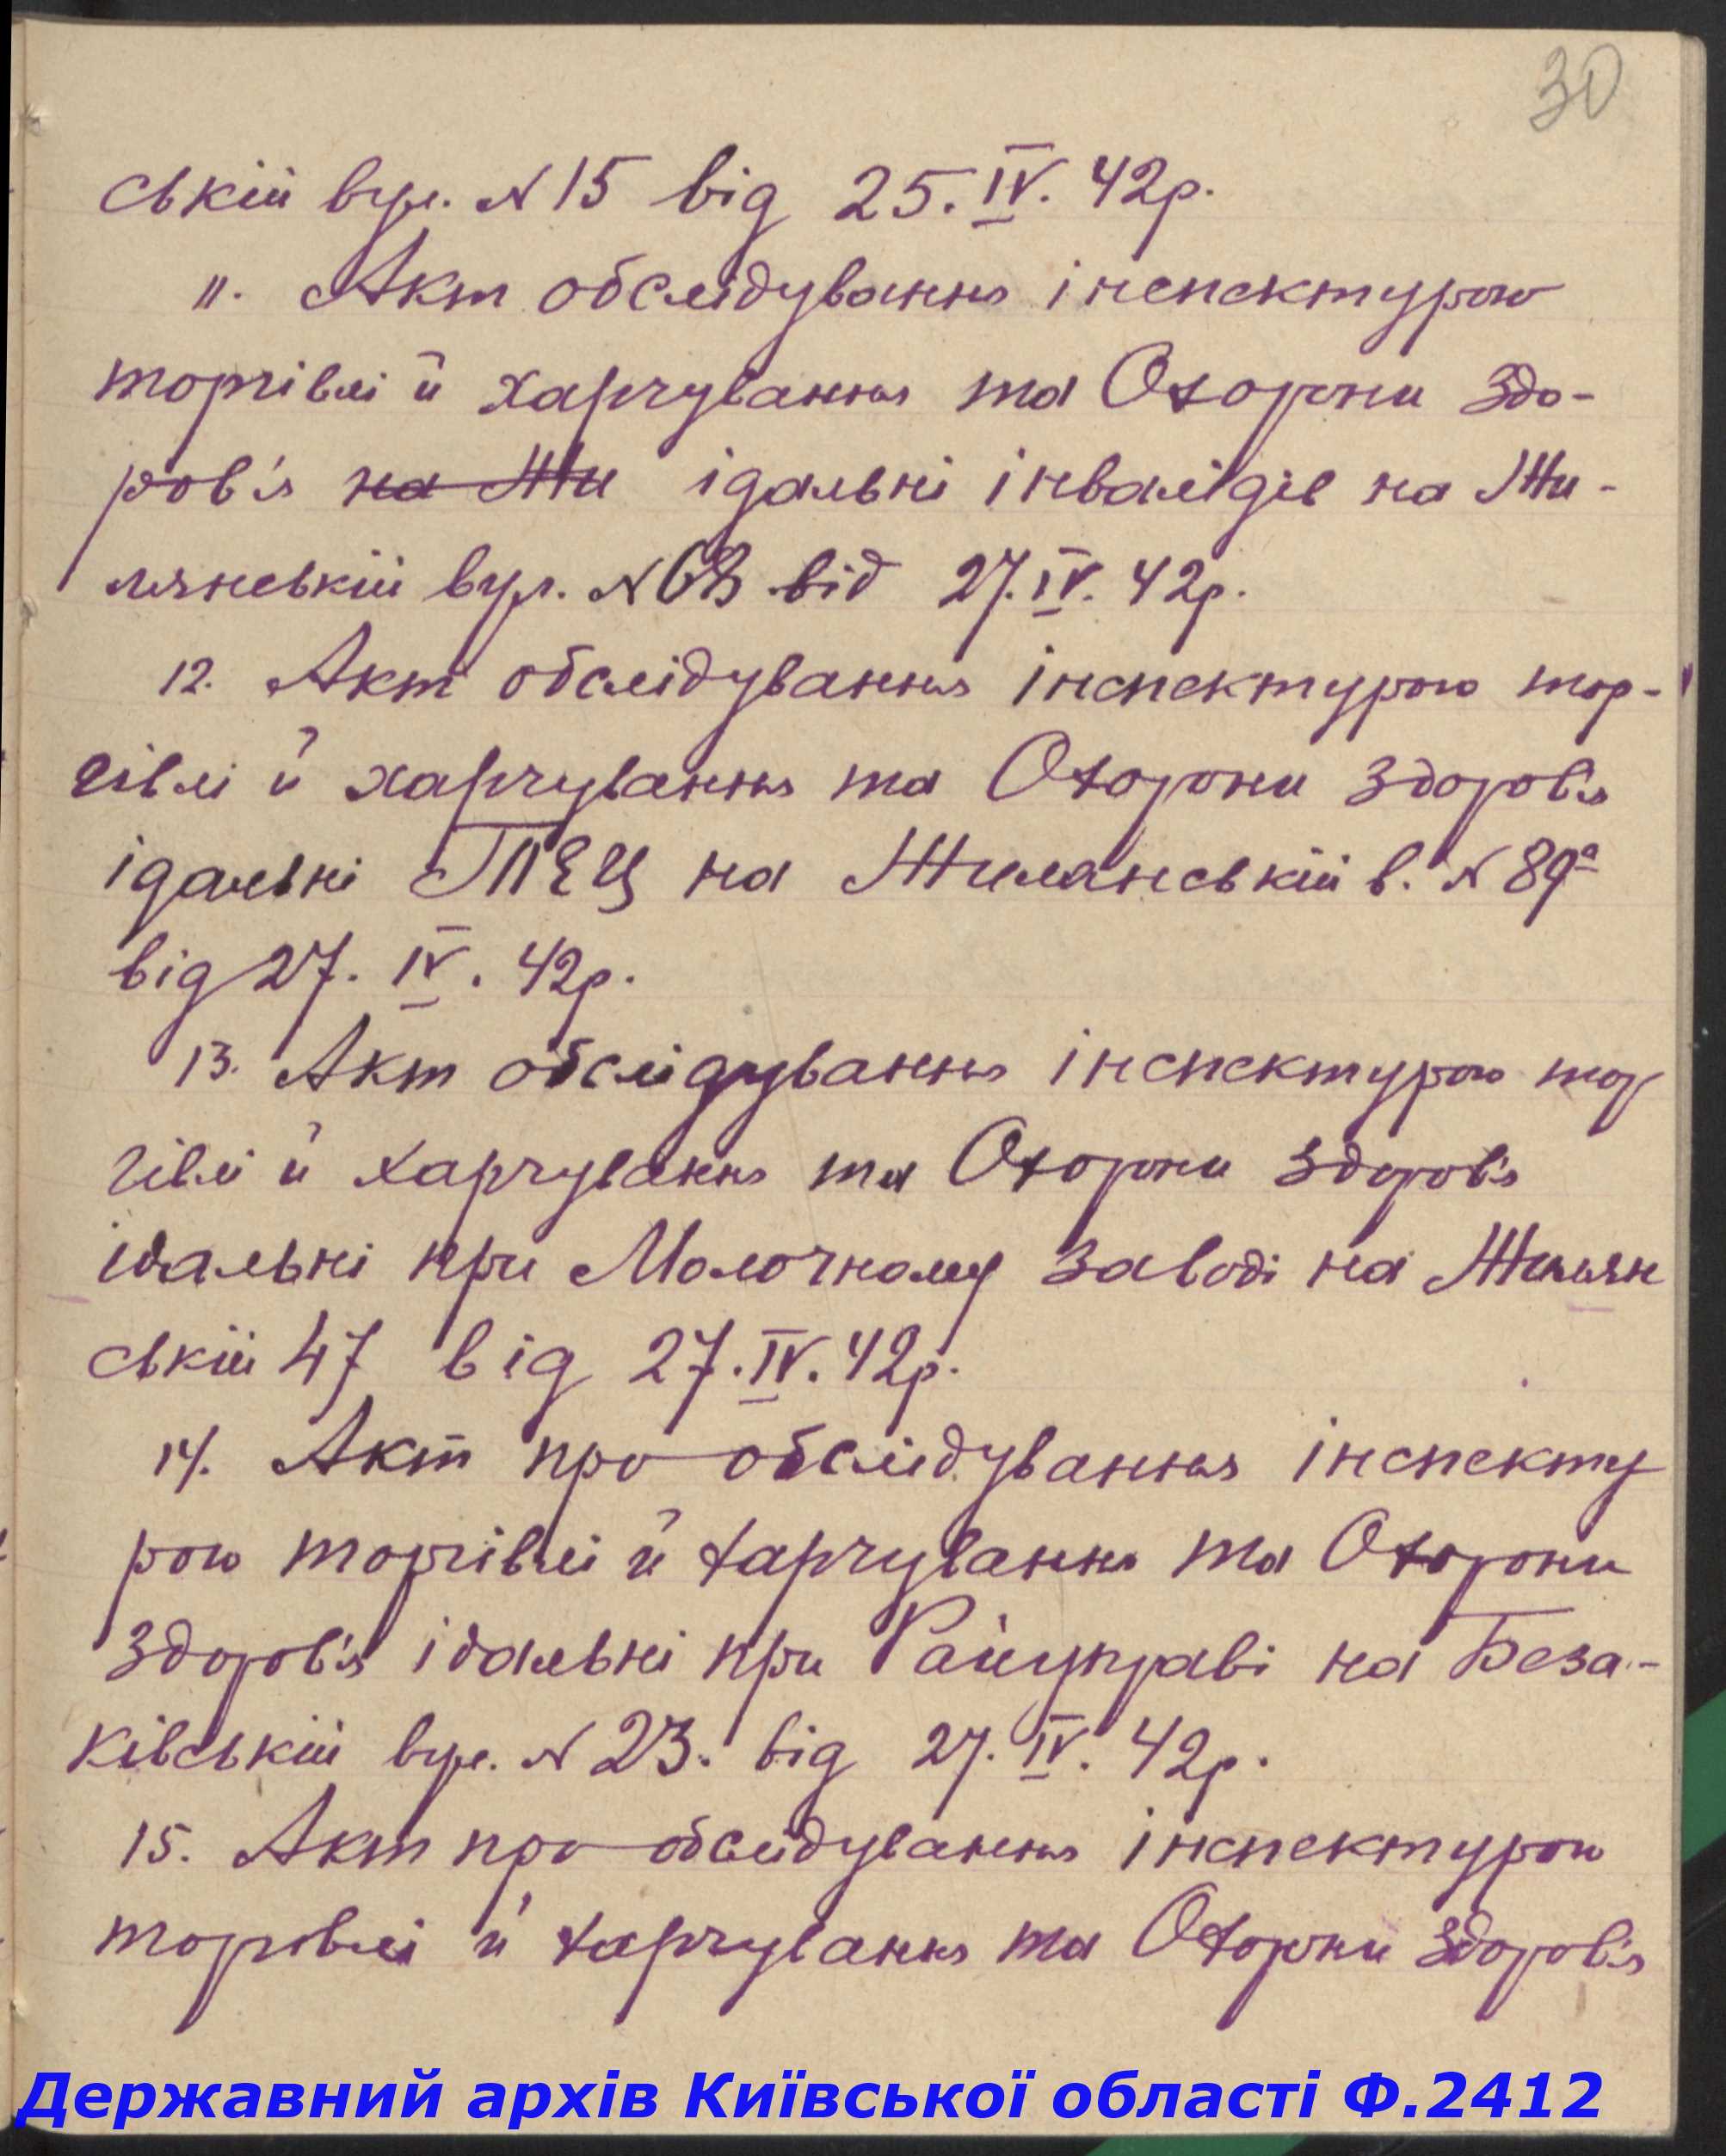 30
ській вул. N 15 від 25.IV.42р.
11. Акт обслідування інспектурою
торгівлі й харчування та Охорони Здо-
ров'я на Жи ідальні інвалідів на Жи-
лянській вул. N 68 від 27.IV.42р.
12. Акт обслідування інспектурою тор-
гівлі й харчування та Охорони здоров'я
ідальні ТЕЦ на Жилянській в. N 89а
від 27.IV.42р.
13. Акт обслідування інспектурою тор
гівлі й харчування та Охорони здоров'я
ідальні при Молочному заводі на Жилян
ській 47 від 27.IV.42р.
14. Акт про обслідування інспекту
рою торгівлі й харчування та Охорони
здоров'я ідальні при Райуправі на Беза-
ківській вул. N 23. від 27.IV.42р.
15. Акт про обслідування інспектурою
торгівлі й харчування та Охорони здоров'я
Державний архів Київської області Ф.2412